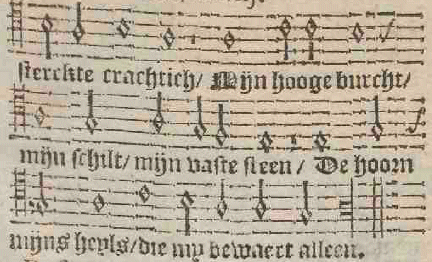 sterckte crachtich/ Mijn hooge burcht/
mijn schilt/ mijn vaste steen/ De hoorn
mijns heyls/die my bewaert alleen.